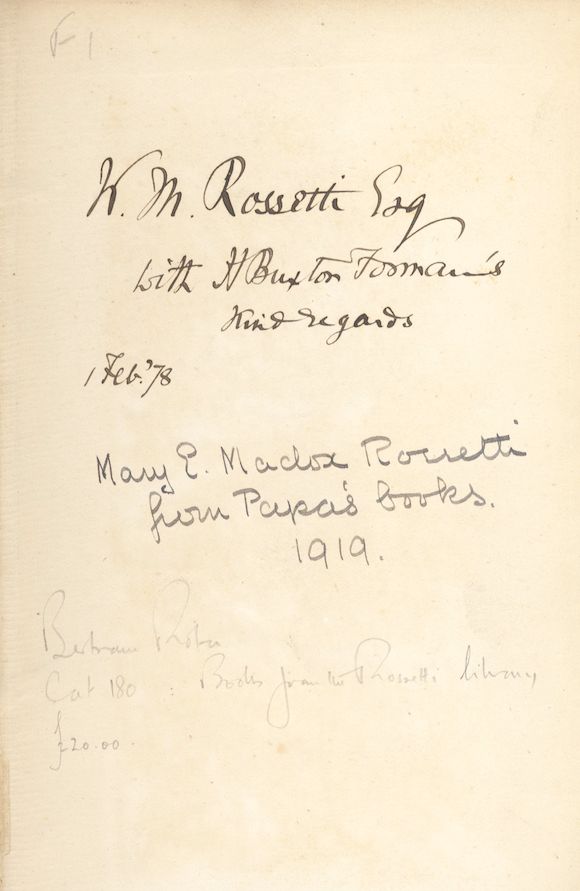 F 1
W. M. Rossetti Esq
with H Buxton Forman's
Kind regards
1 Feb. '78
Mary E. Madox Rossetti
from Papa's books.
1919.
Bertram Rota
Cat 180 : Books from the Rossetti library
£20.00.